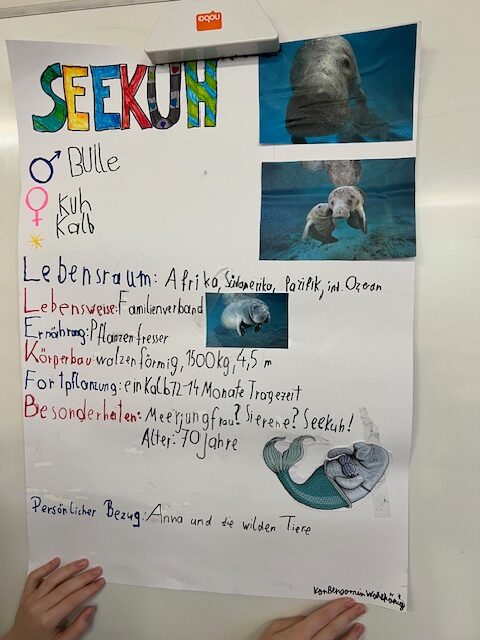 nobo
SEEKUH
♂ BULLe
♀ Kuh
Kalb
Lebensraum: Afrika, Südamerika, Pazifik, ind. Ozean
Lebensweise: Familienverband
Ernährung: Pflanzenfresser
Körperbau: walzenförmig, 1500kg, 4,5 m
Fortpflanzung: ein Kalb 12-14 Monate Tragezeit
Besonderheiten: Meerjungfrau? Sierene? Seekuh!
Alter: 70 Jahre
Persönlicher Bezug: Anna und die wilden Tiere